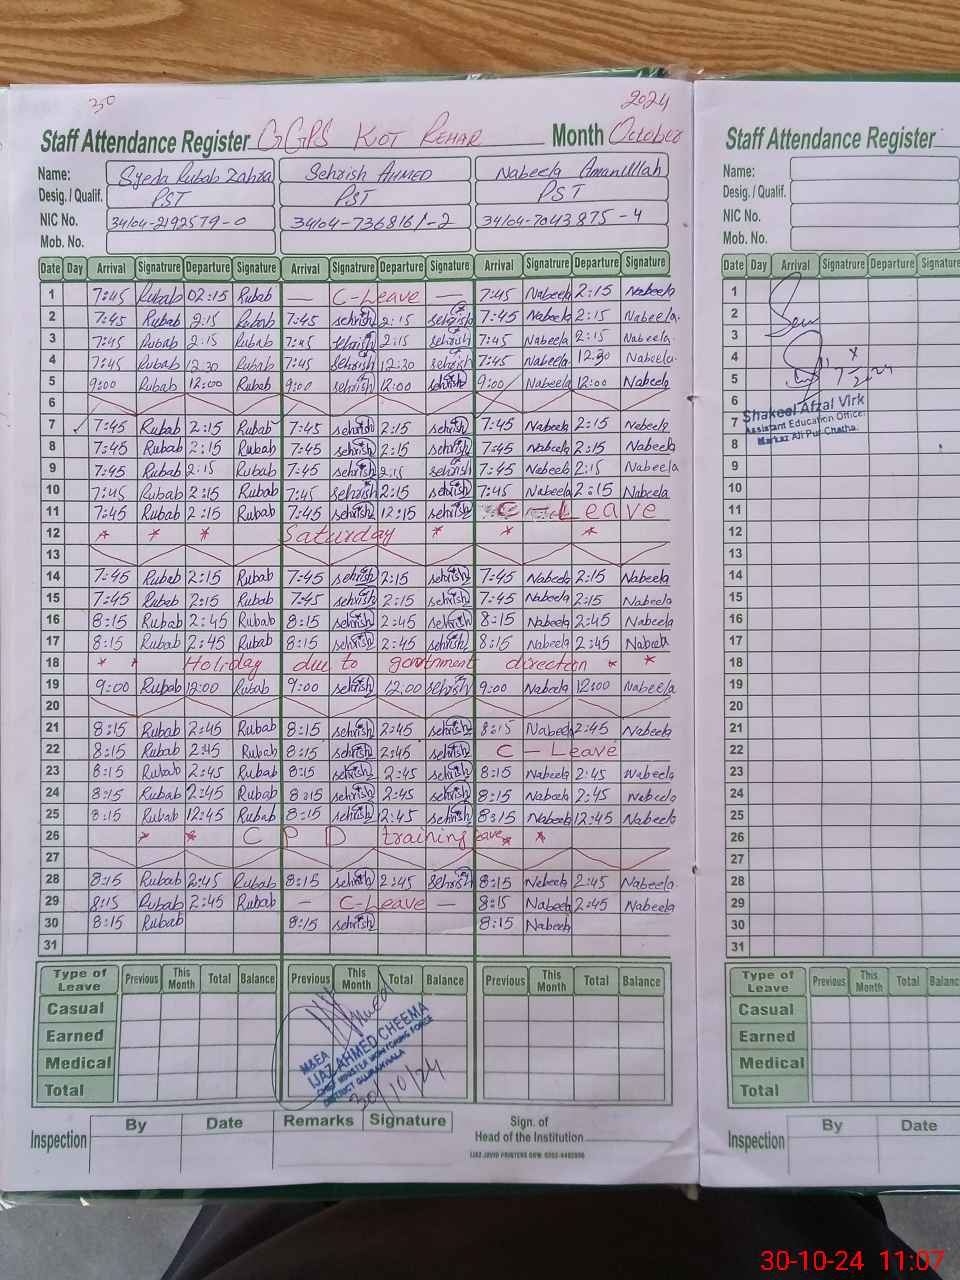 30
2024
Staff Attendance Register GGPS KOT REHAR Month October
Name: Syeda Rubab Zahra Sehrish AHMED Nabeela Amanullah
Desig. / Qualif. PST PST PST
NIC No. 34104-2192579-0 34104-7368161-2 34104-7043875-4
Mob. No.
Date Day Arrival Signatrure Departure Signature Arrival Signatrure Departure Signature Arrival Signatrure Departure Signature
1 7:45 Rubab 02:15 Rubab — C-Leave — 7:45 Nabeela 2:15 Nabeela
2 7:45 Rubab 2:15 Rubab 7:45 sehrish 2:15 sehrish 7:45 Nabeela 2:15 Nabeela
3 7:45 Rubab 2:15 Rubab 7:45 sehrish 2:15 sehrish 7:45 Nabeela 2:15 Nabeela
4 7:45 Rubab 12:30 Rubab 7:45 sehrish 12:30 sehrish 7:45 Nabeela 12:30 Nabeela
5 9:00 Rubab 12:00 Rubab 9:00 sehrish 12:00 sehrish 9:00 Nabeela 12:00 Nabeela
6
7 7:45 Rubab 2:15 Rubab 7:45 sehrish 2:15 sehrish 7:45 Nabeela 2:15 Nebeela
8 7:45 Rubab 2:15 Rubab 7:45 sehrish 2:15 sehrish 7:45 Nabeela 2:15 Nabeela
9 7:45 Rubab 2:15 Rubab 7:45 sehrish 2:15 sehrish 7:45 Nabeela 2:15 Nabeela
10 7:45 Rubab 2:15 Rubab 7:45 sehrish 2:15 sehrish 7:45 Nabeela 2:15 Nabeela
11 7:45 Rubab 2:15 Rubab 7:45 sehrish 12:15 sehrish C-Leave
12 Saturday
13
14 7:45 Rubab 2:15 Rubab 7:45 sehrish 2:15 sehrish 7:45 Nabeela 2:15 Nabeela
15 7:45 Rubab 2:15 Rubab 7:45 sehrish 2:15 sehrish 7:45 Nabeela 2:15 Nabeela
16 8:15 Rubab 2:45 Rubab 8:15 sehrish 2:45 sehrish 8:15 Nabeela 2:45 Nabeela
17 8:15 Rubab 2:45 Rubab 8:15 sehrish 2:45 sehrish 8:15 Nabeela 2:45 Nabeela
18 Holiday due to
19 9:00 Rubab 12:00 Rubab 9:00 sehrish 12:00 sehrish 9:00 Nabeela 12:00 Nabeela
20
21 8:15 Rubab 2:45 Rubab 8:15 sehrish 2:45 sehrish 8:15 Nabeela 2:45 Nabeela
22 8:15 Rubab 2:45 Rubab 8:15 sehrish 2:45 sehrish C - Leave
23 8:15 Rubab 2:45 Rubab 8:15 sehrish 2:45 sehrish 8:15 Nabeela 2:45 Nabeela
24 8:15 Rubab 2:45 Rubab 8:15 sehrish 2:45 sehrish 8:15 Nabeela 2:45 Nabeela
25 8:15 Rubab 12:45 Rubab 8:15 sehrish 12:45 sehrish 8:15 Nabeela 12:45 Nabeela
26 C P D training
27
28 8:15 Rubab 2:45 Rubab 8:15 sehrish 2:45 sehrish 8:15 Nabeela 2:45 Nabeela
29 8:15 Rubab 2:45 Rubab — C-Leave — 8:15 Nabeela 2:45 Nabeela
30 8:15 Rubab 8:15 sehrish 8:15 Nabeela
31
Type of Leave Previous This Month Total Balance Previous This Month Total Balance Previous This Month Total Balance
Casual
Earned
Medical
Total
M&EA
IJAZ AHMED CHEEMA
CHIEF MINISTER MONITORING FORCE
DISTRICT GUJRANWALA
30/10/24
Inspection By Date Remarks Signature Sign. of
Head of the Institution
Staff Attendance Register
Name:
Desig. / Qualif.
NIC No.
Mob. No.
Date Day Arrival Signatrure Departure Signature
1
2
3
4
5
6
7
8
9
10
11
12
13
14
15
16
17
18
19
20
21
22
23
24
25
26
27
28
29
30
31
Shakeel Afzal Virk
Assistant Education Officer
Markaz Ali Pur Chatha.
Type of Leave Previous This Month Total Balance
Casual
Earned
Medical
Total
Inspection By Date
30-10-24 11:07